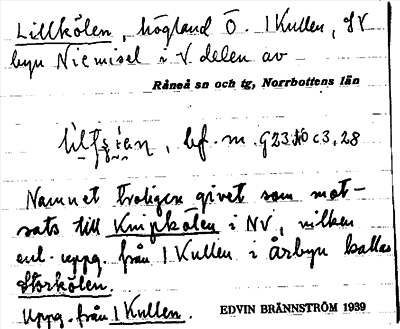 Lillkölen, högland Ö. I Kullen, SV
byn Niemisel i V. delen av
Råneå sn och tg, Norrbottens län
bf. m. 923 10 c3, 28
Namnet troligen givet som mot-
sats till Knipkölen i NV, vilken
enl. uppg. från I Kullen i Årbyn kallas
Storkölen.
Uppg. från I Kullen.
EDVIN BRÄNNSTRÖM 1939